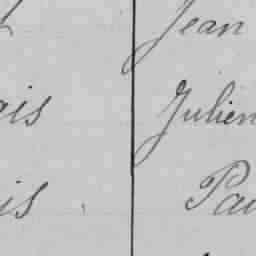 Jean
ais Julien
is Pau